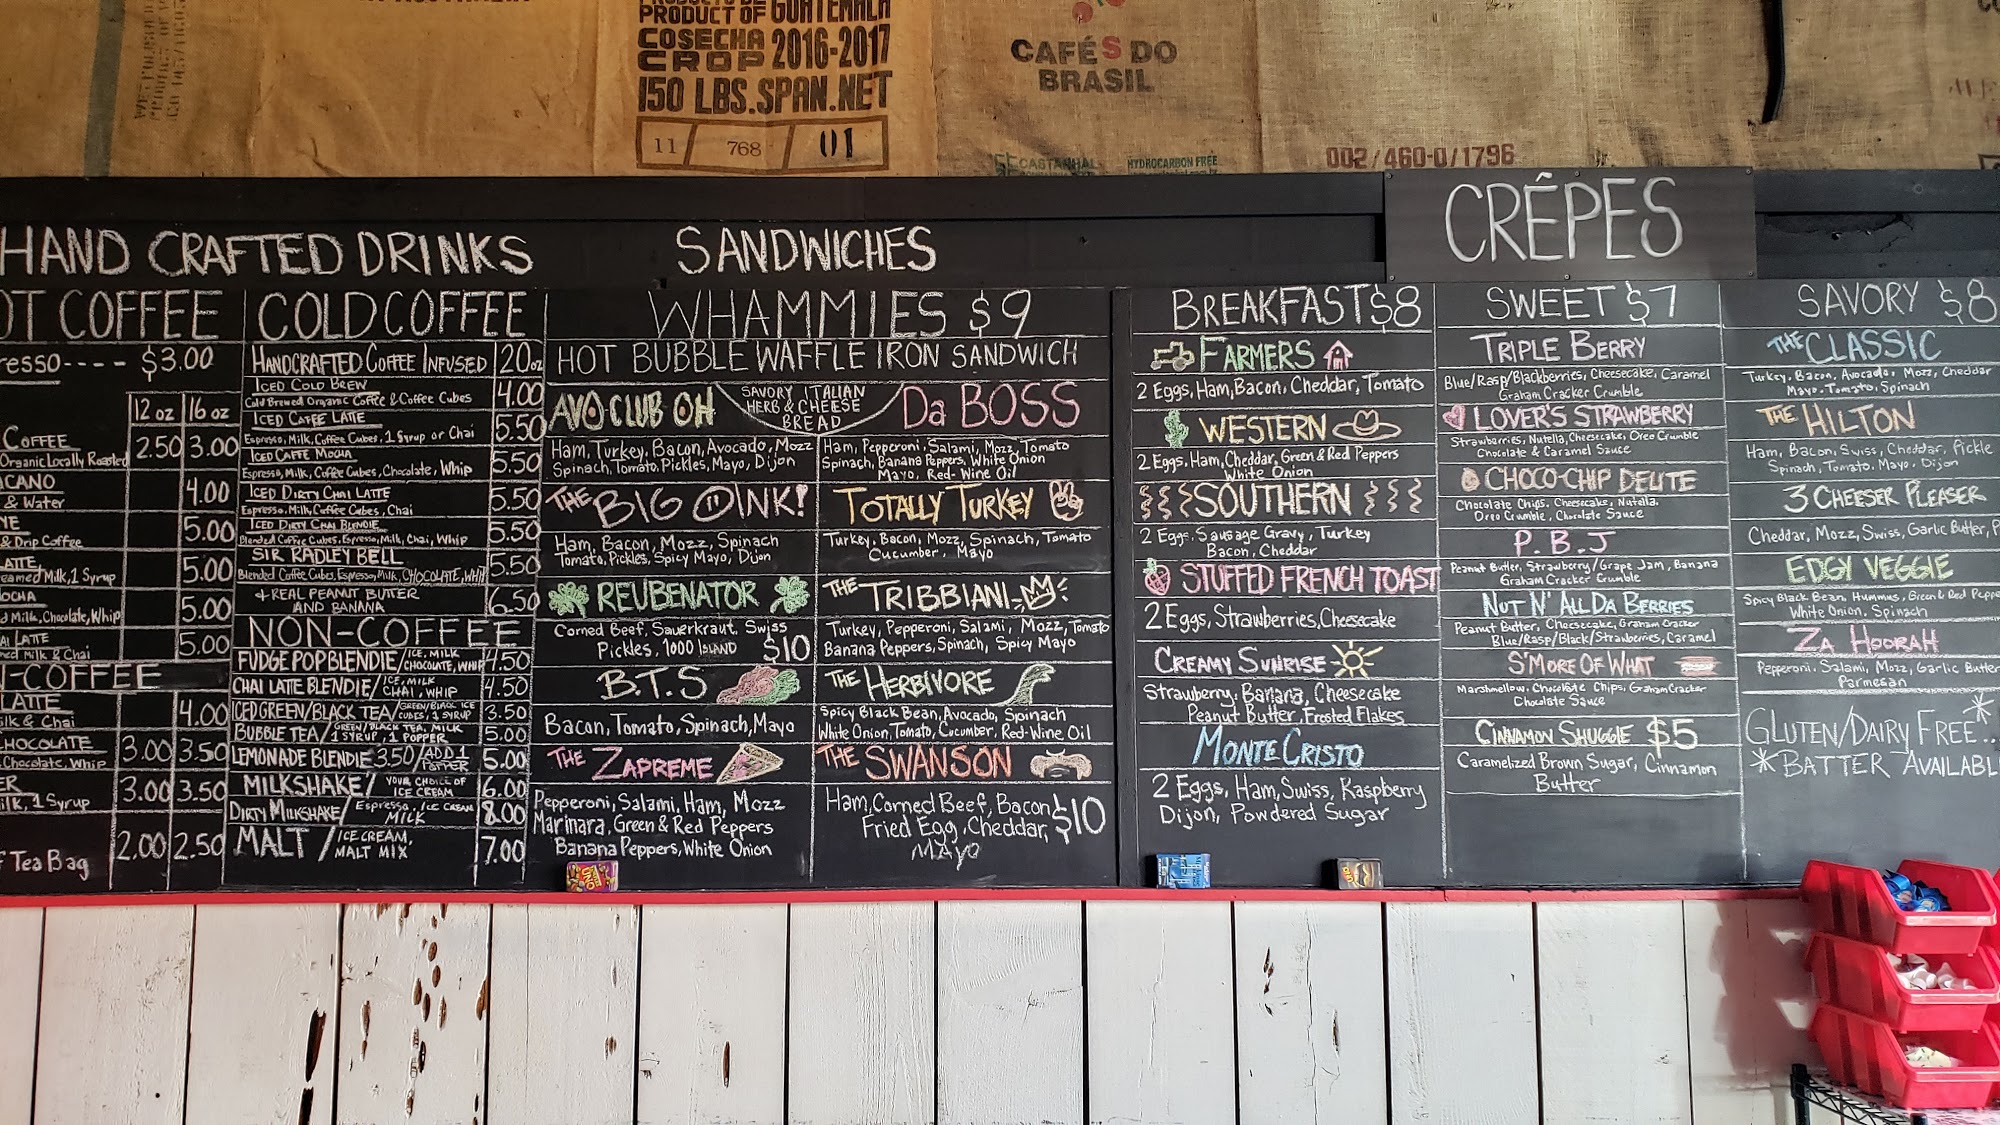 PRODUCT OF GUATEMALA
COSECHA 2016-2017
CROP
150 LBS.SPAN.NET
11 768 01
CAFÉS DO
BRASIL
CASTANHAL
HYDROCARBON FREE
002/460-0/1796
HAND CRAFTED DRINKS
OT COFFEE
resso---- $3.00
12 oz 16 oz
COFFEE 2.50 3.00
Organic Locally Roasted
CANO 4.00
& Water
5.00
& Drip Coffee
ATTE 5.00
eamed Milk, 1 Syrup
OCHA 5.00
d Milk, Chocolate, Whip
AI LATTE 5.00
ned Milk & Chai
-COFFEE
LATTE 4.00
ilk & Chai
CHOCOLATE 3.00 3.50
Chocolate, Whip
ER 3.00 3.50
ilk, 1 Syrup
2.00 2.50
Tea Bag
COLD COFFEE
HANDCRAFTED COFFEE INFUSED 20oz
ICED COLD BREW 4.00
Cold Brewed Organic Coffee & Coffee Cubes
ICED CAFFE LATTE 5.50
Espresso, Milk, Coffee Cubes, 1 Syrup or Chai
ICED CAFFE MOCHA 5.50
Espresso, Milk, Coffee Cubes, Chocolate, Whip
ICED DIRTY CHAI LATTE 5.50
Espresso, Milk, Coffee Cubes, Chai
ICED DIRTY CHAI BLENDIE 5.50
Blended Coffee Cubes, Espresso, Milk, Chai, Whip
SIR RADLEY BELL 5.50
Blended Coffee Cubes, Espresso, Milk, CHOCOLATE, WHIP
+ REAL PEANUT BUTTER 6.50
AND BANANA
NON-COFFEE
FUDGE POP BLENDIE / ICE, MILK CHOCOLATE, WHIP 4.50
CHAI LATTE BLENDIE / ICE, MILK CHAI, WHIP 4.50
ICED GREEN/BLACK TEA / GREEN/BLACK ICE CUBES, 1 SYRUP 3.50
BUBBLE TEA / GREEN/BLACK TEA, MILK 1 SYRUP, 1 POPPER 5.00
LEMONADE BLENDIE 3.50 / ADD 1 POPPER 5.00
MILKSHAKE / YOUR CHOICE OF ICE CREAM 6.00
DIRTY MILKSHAKE / ESPRESSO, ICE CREAM MILK 8.00
MALT / ICE CREAM, MALT MIX 7.00
SANDWICHES
WHAMMIES $9
HOT BUBBLE WAFFLE IRON SANDWICH
SAVORY ITALIAN
HERB & CHEESE
BREAD
AVO CLUB OH
Ham, Turkey, Bacon, Avocado, Mozz
Spinach, Tomato, Pickles, Mayo, Dijon
THE BIG OINK!
Ham, Bacon, Mozz, Spinach
Tomato, Pickles, Spicy Mayo, Dijon
REUBENATOR
Corned Beef, Sauerkraut, Swiss
Pickles, 1000 ISLAND $10
B.T.S
Bacon, Tomato, Spinach, Mayo
THE ZAPREME
Pepperoni, Salami, Ham, Mozz
Marinara, Green & Red Peppers
Banana Peppers, White Onion
Da BOSS
Ham, Pepperoni, Salami, Mozz, Tomato
Spinach, Banana Peppers, White Onion
Mayo, Red-Wine Oil
TOTALLY TURKEY
Turkey, Bacon, Mozz, Spinach, Tomato
Cucumber, Mayo
THE TRIBBIANI
Turkey, Pepperoni, Salami, Mozz, Tomato
Banana Peppers, Spinach, Spicy Mayo
THE HERBIVORE
Spicy Black Bean, Avocado, Spinach
White Onion, Tomato, Cucumber, Red-Wine Oil
THE SWANSON
Ham, Corned Beef, Bacon
Fried Egg, Cheddar, $10
MAYO
CRÊPES
BREAKFAST $8
FARMERS
2 Eggs, Ham, Bacon, Cheddar, Tomato
WESTERN
2 Eggs, Ham, Cheddar, Green & Red Peppers
White Onion
SOUTHERN
2 Eggs, Sausage Gravy, Turkey
Bacon, Cheddar
STUFFED FRENCH TOAST
2 Eggs, Strawberries, Cheesecake
CREAMY SUNRISE
Strawberry, Banana, Cheesecake
Peanut Butter, Frosted Flakes
MONTE CRISTO
2 Eggs, Ham, Swiss, Raspberry
Dijon, Powdered Sugar
SWEET $7
TRIPLE BERRY
Blue/Rasp/Blackberries, Cheesecake, Caramel
Graham Cracker Crumble
LOVER'S STRAWBERRY
Strawberries, Nutella, Cheesecake, Oreo Crumble
Chocolate & Caramel Sauce
CHOCO-CHIP DELITE
Chocolate Chips, Cheesecake, Nutella,
Oreo Crumble, Chocolate Sauce
P.B.J
Peanut Butter, Strawberry/Grape Jam, Banana
Graham Cracker Crumble
NUT N' ALL DA BERRIES
Peanut Butter, Cheesecake, Graham Cracker
Blue/Rasp/Black/Strawberries, Caramel
S'MORE OF WHAT
Marshmellow, Chocolate Chips, Graham Cracker
Chocolate Sauce
CINNAMON SHUGGIE $5
Caramelized Brown Sugar, Cinnamon
Butter
SAVORY $8
THE CLASSIC
Turkey, Bacon, Avocado, Mozz, Cheddar
Mayo, Tomato, Spinach
THE HILTON
Ham, Bacon, Swiss, Cheddar, Pickle
Spinach, Tomato, Mayo, Dijon
3 CHEESER PLEASER
Cheddar, Mozz, Swiss, Garlic Butter, P
EDGY VEGGIE
Spicy Black Bean, Hummus, Green & Red Peppe
White Onion, Spinach
ZA HOORAH
Pepperoni, Salami, Mozz, Garlic Butter
Parmesan
GLUTEN/DAIRY FREE...
*BATTER AVAILABL
UNO